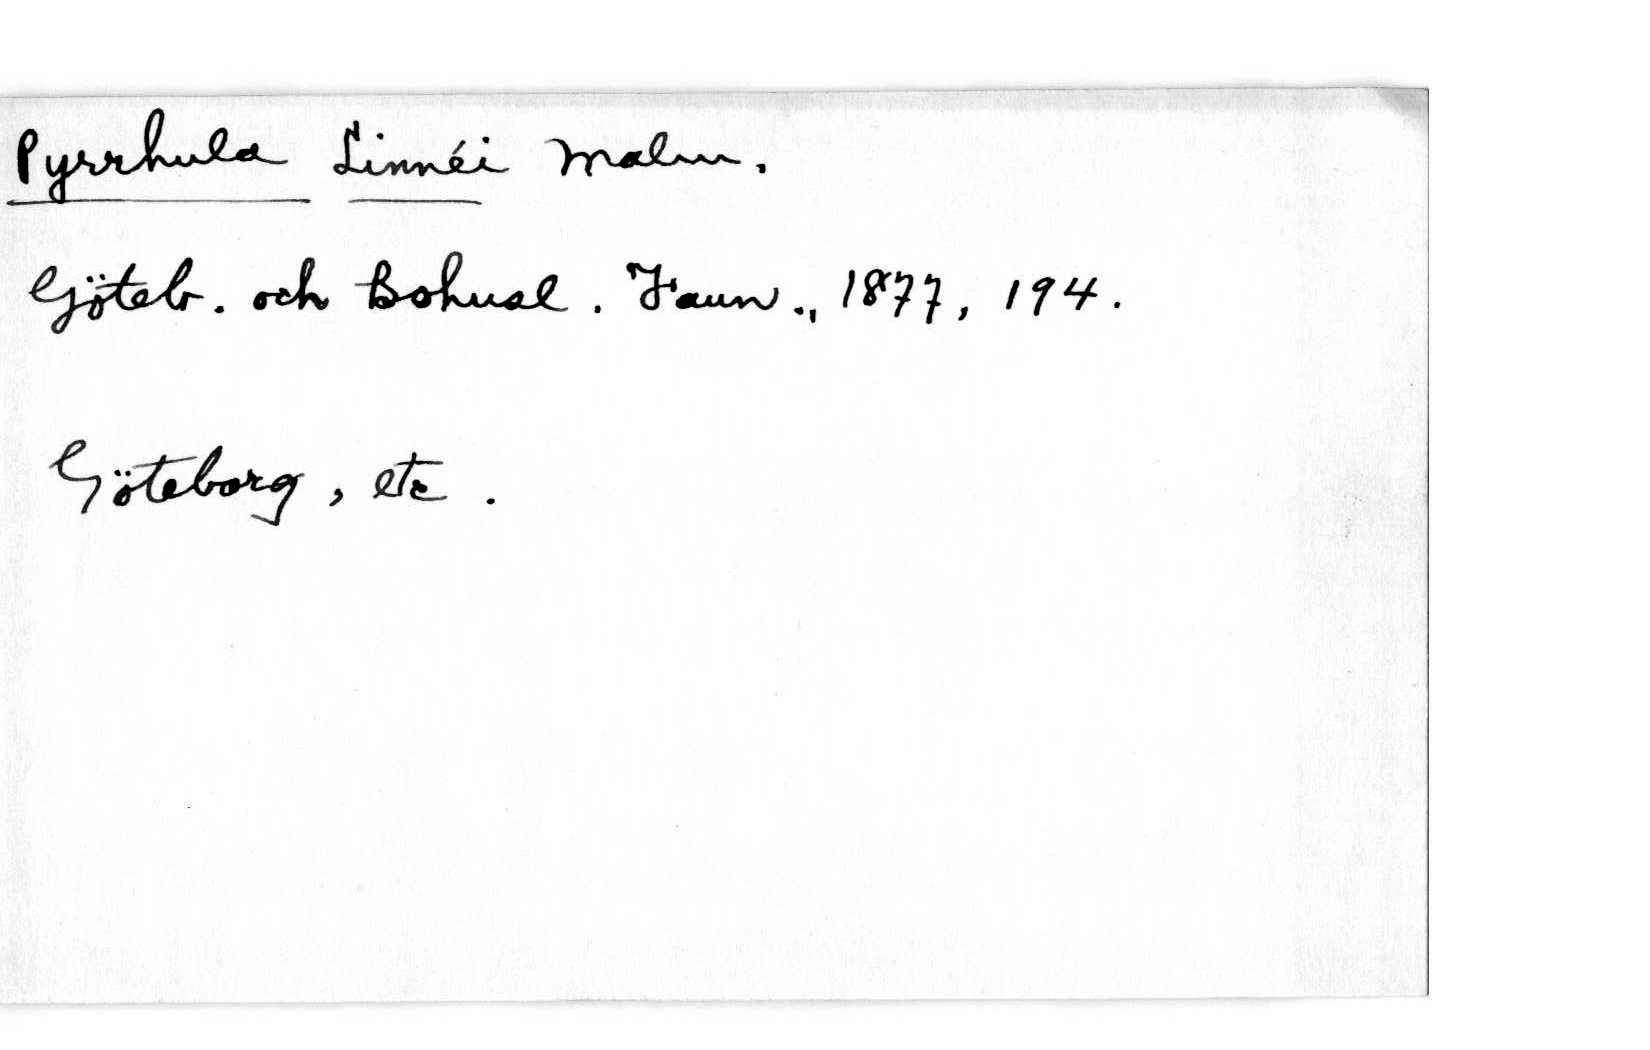 Pyrrhula Linnéi Malm.
Göteb. och Bohusl. Faun., 1877, 194.
Göteborg, etc.